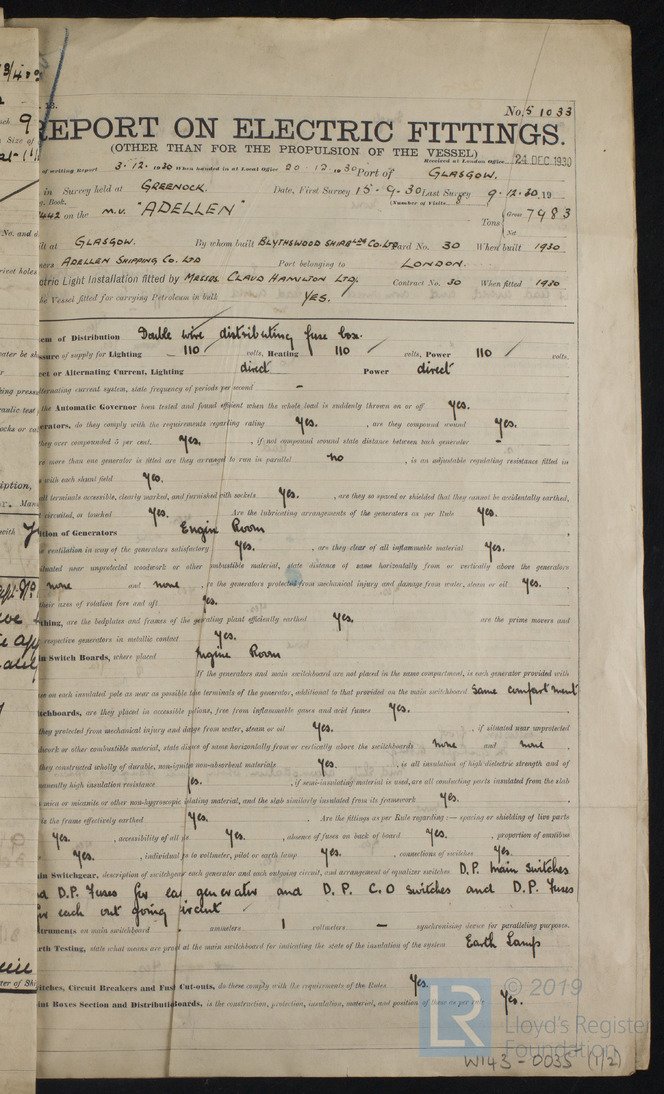 No. 51033
REPORT ON ELECTRIC FITTINGS.
(OTHER THAN FOR THE PROPULSION OF THE VESSEL)
of writing Report 3.12.1930 When handed in at Local Office 20.12.1930 Port of GLASGOW. Received at London Office 24 DEC. 1930
in Survey held at GREENOCK. Date, First Survey 15.9.30 Last Survey 9.12.30. 19
Book. (Number of Visits 8
on the M.V. "ADELLEN" Tons Gross 7983
Net
at GLASGOW. By whom built BLYTHSWOOD SHIPBLDG CO. LTD Yard No. 30 When built 1930
ADELLEN SHIPPING CO. LTD Port belonging to LONDON.
Electric Light Installation fitted by MESSRS. CLAUD HAMILTON LTD. Contract No. 30 When fitted 1930
the Vessel fitted for carrying Petroleum in bulk YES.
of Distribution Double wire distributing fuse box.
of supply for Lighting 110 volts, Heating 110 volts, Power 110 volts.
or Alternating Current, Lighting direct Power direct
alternating current system, state frequency of periods per second -
the Automatic Governor been tested and found efficient when the whole load is suddenly thrown on or off Yes.
do they comply with the requirements regarding rating Yes. , are they compound wound Yes.
they over compounded 5 per cent. Yes. , if not compound wound state distance between each generator -
more than one generator is fitted are they arranged to run in parallel no , is an adjustable regulating resistance fitted in
with each shunt field Yes.
all terminals accessible, clearly marked, and furnished with sockets Yes. , are they so spaced or shielded that they cannot be accidentally earthed,
circuited, or touched Yes. Are the lubricating arrangements of the generators as per Rule Yes.
of Generators Engine Room
ventilation in way of the generators satisfactory Yes. , are they clear of all inflammable material Yes.
near unprotected woodwork or other combustible material, state distance of same horizontally from or vertically above the generators
none and none , are the generators protected from mechanical injury and damage from water, steam or oil Yes.
their axes of rotation fore and aft Yes.
are the bedplates and frames of the generating plant efficiently earthed Yes. are the prime movers and
respective generators in metallic contact Yes.
Main Switch Boards, where placed Engine Room
If the generators and main switchboard are not placed in the same compartment, is each generator provided with
on each insulated pole as near as possible to the terminals of the generator, additional to that provided on the main switchboard same compartment
Switchboards, are they placed in accessible positions, free from inflammable gases and acid fumes Yes.
they protected from mechanical injury and damage from water, steam or oil Yes. , if situated near unprotected
woodwork or other combustible material, state distance of same horizontally from or vertically above the switchboards none and none
they constructed wholly of durable, non-ignitable non-absorbent materials Yes. , is all insulation of high dielectric strength and of
permanently high insulation resistance Yes. , if semi-insulating material is used, are all conducting parts insulated from the slab
mica or micanite or other non-hygroscopic insulating material, and the slab similarly insulated from its framework Yes.
is the frame effectively earthed Yes. Are the fittings as per Rule regarding :— spacing or shielding of live parts
Yes. , accessibility of all parts Yes. , absence of fuses on back of board Yes. , proportion of omnibus
Yes. , individual fuses to voltmeter, pilot or earth lamp Yes. , connections of switches Yes.
Main Switchgear, description of switchgear for each generator and each outgoing circuit, and arrangement of equalizer switches D.P. main switches
and D.P. Fuses for each generator and D.P. C.O switches and D.P. Fuses
for each out going circuit
Instruments on main switchboard ammeters 1 voltmeters - synchronising device for paralleling purposes.
Earth Testing, state what means are provided at the main switchboard for indicating the state of the insulation of the system Earth Lamps
Switches, Circuit Breakers and Fuse Cut-outs, do these comply with the requirements of the Rules Yes.
Joint Boxes Section and Distribution Boards, is the construction, protection, insulation, material, and position of these as per rule Yes.
© 2019
LR
Lloyd's Register
Foundation
W143-0035 (1/2)